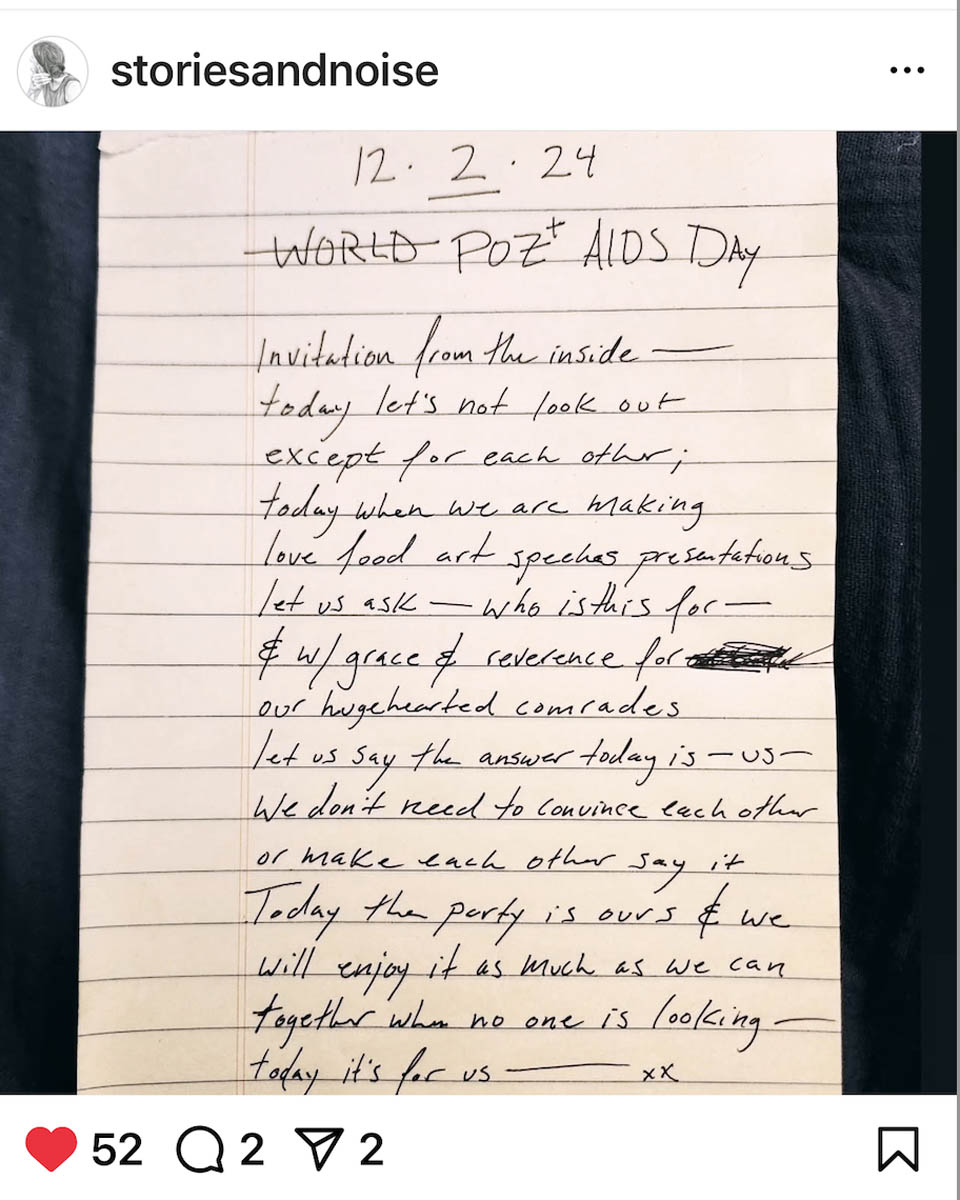 storiesandnoise
12 . 2 . 24
WORLD POZ+ AIDS DAY
Invitation from the inside —
today let's not look out
except for each other;
today when we are making
love food art speches presentations
let us ask — who is this for —
& w/ grace & reverence for
our hugehearted comrades
let us say the answer today is — us —
We don't need to convince each other
or make each other say it
Today the party is ours & we
will enjoy it as much as we can
together when no one is looking —
today it's for us — xx
52 2 2